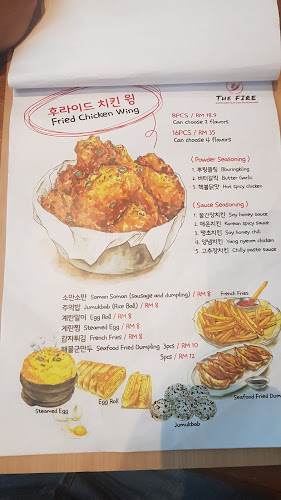 THE FIRE
후라이드 치킨 윙
Fried Chicken Wing
8PCS / RM 18.9
Can choose 2 flavors
16PCS / RM 35
Can choose 4 flavors
( Powder Seasoning )
1. 뿌링클링 Bburingkling
2. 버터갈릭 Butter Garlic
3. 핵불닭맛 Hot spicy chicken
( Sauce Seasoning )
1. 물간장치킨 Soy honey sauce
2. 매운치킨 Korean spicy sauce
3. 땡초치킨 Soy honey chili
4. 양념치킨 Yang nyeom chicken
5. 고추장치킨 Chilly paste sauce
소만소만 Soman Soman (Sausage and dumpling) / RM 8
주먹밥 Jumukbab (Rice Ball) / RM 8
계란말이 Egg Roll / RM 8
계란찜 Steamed Egg / RM 8
감자튀김 French Fries / RM 8
해물군만두 Seafood Fried Dumpling 3pcs / RM 10
5pcs / RM 12
French Fries
Steamed Egg
Egg Roll
Jumukbab
Seafood Fried Dum